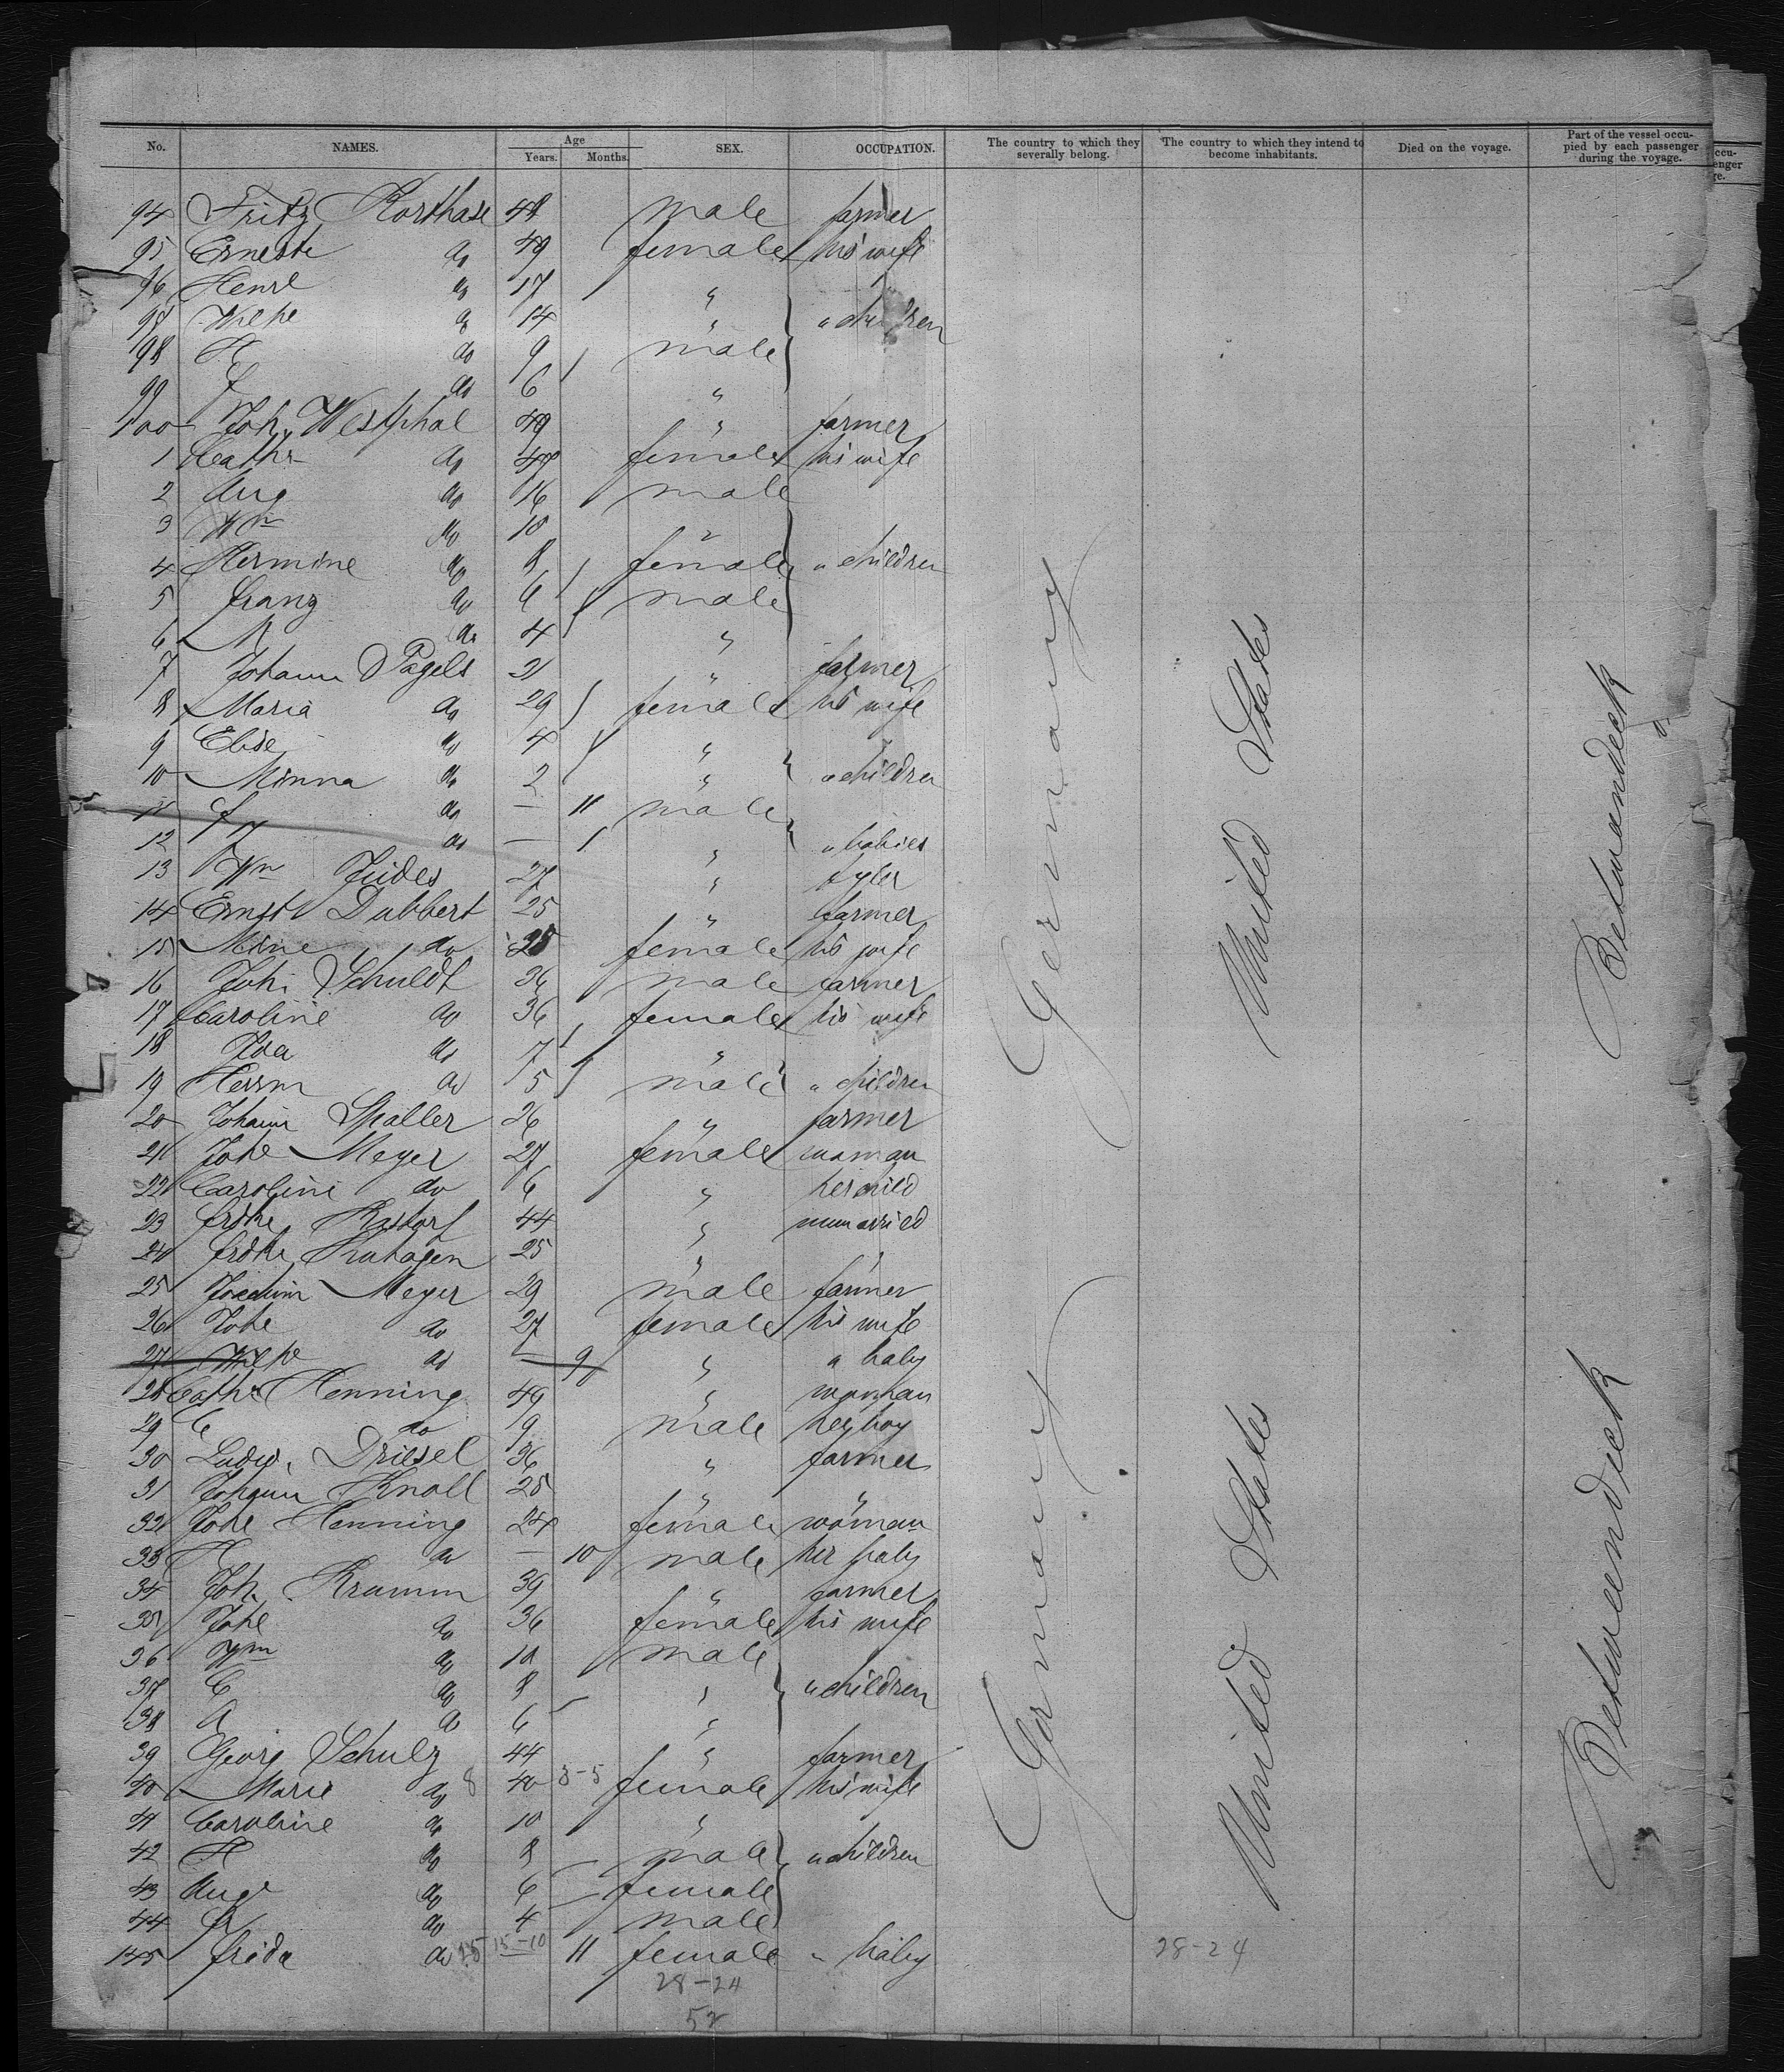 No. NAMES. Age Years. Months. SEX. OCCUPATION. The country to which they severally belong. The country to which they intend to become inhabitants. Died on the voyage. Part of the vessel occupied by each passenger during the voyage.
94 Fritz Korthase 48 male farmer
95 Erneste do 49 female his wife
96 Henrl do 17 "
97 Wilhe do 14 " " children
98 H do 9 male
99 do 6 "
100 Joh. Westphal 49 " farmer
1 Cathr do female his wife
2 Aug do 16 male
3 Wm do 10 "
4 Hermine do 8 female " children
5 Franz do 6 male
6 do 4 "
7 Johann Pagels 31 " farmer
8 Maria do 29 female his wife
9 Elise do 4 "
10 Minna do 2 " " children
11 do — 11 male
12 do — 1 " " babies
13 Wm Judes 27 " tyler
14 Ernst Dubbert 25 " farmer
15 Mine do 28 female his wife
16 Joh. Schuldt 36 male farmer
17 Caroline do 36 female his wife
18 Ida do 7 "
19 Herrm do 5 male " children
20 Johann Spaller 26 " farmer
21 Johe Meyer 27 female woman
22 Caroline do 6 " her child
23 Frdke Rastorf 44 " unmarried
24 Frdke Kuhagen 25 " "
25 Joachim Meyer 29 male farmer
26 Johe do 27 female his wife
27 Wilhe do — 9 " " baby
28 Cathr Henning 49 " woman
29 C do 9 male her boy
30 Ludw. Driesel 36 " farmer
31 Johann Knoll 25 " "
32 Johe Henning 24 female woman
33 H do — 10 male her baby
34 Joh. Krumm 39 " farmer
35 Johe do 36 female his wife
36 Wm do 10 male
37 C do 8 " " children
38 A do 6 "
39 Georg Schulz 44 " farmer
40 Marie do 8 40 8-5 female his wife
41 Caroline do 10 "
42 H do 8 male " children
43 Auge do 6 female
44 do 4 male
145 Frida do 15-10 11 female " baby
28-24
52
28-24
Germany
United States
Betweendeck
Germany
United States
Betweendeck